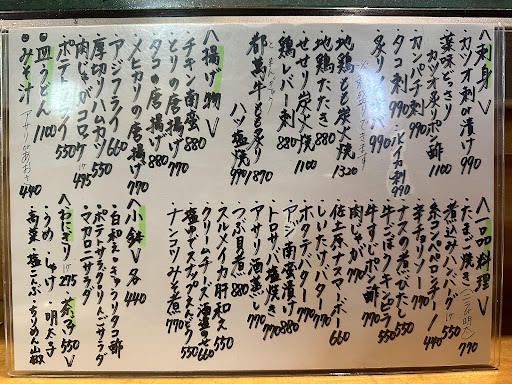 〈刺身〉
カツオ刺or漬け 990
薬味どっさり
カツオ炙りポン酢 1100
カンパチ刺 990
タコ刺 990
スルメイカ刺 990
地鶏もも炭火焼 1320
地鶏たたき 880
せせり炭火焼 1100
地鶏レバー刺 880
都萬牛もも炙り 1870
ハツ塩焼 990
〈揚げ物〉
チキン南蛮 880
とりの唐揚げ 770
タコの唐揚げ 880
メヒカリの唐揚げ 770
アジフライ 660
厚切りハムカツ 550
肉じゃがコロッケ 1ケ 495
ポテトフライ 550
◎皿うどん 1100
◎みそ汁 アサリorあおさ 440
〈一品料理〉
・たまご焼き (ニラ、明太) 770
・煮込みハンバーグ
・糸コンペペロンチーノ 440
・辛チョリソー 550
・ナスの煮びたし 550
・牛ごぼうキンピラ 550
・牛すじポン酢 770
・肉じゃが 770
・佐土原ナスマーボー 660
・しいたけバター
・ホタテバター
・アジ南蛮漬け 880
・トロサバ塩焼き 770
・アサリ酒蒸し 770
・つぶ貝煮 770
・スルメイカ肝和え 550
・クリームチーズ酒盗のせ 660
・塩ゆでスナップえんどう 550
・ナンコツみそ煮 770
〈小鉢〉各440
・白和え ・きゅうりタコ酢
・ポテトサラダ ・りんごサラダ
・マカロニサラダ
〈おにぎり〉1ケ 275 茶漬 550
・うめ ・しゃけ ・明太子
・高菜 ・塩こんぶ ・ちりめん山椒